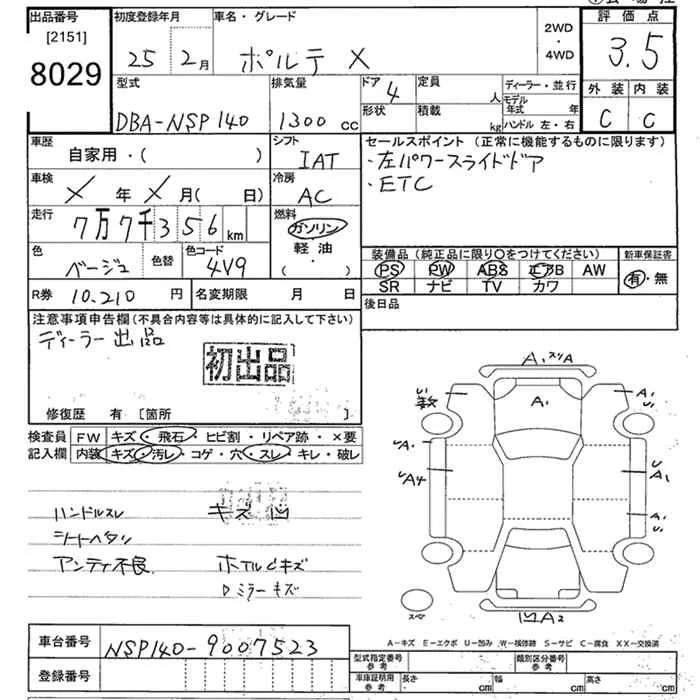 出品番号 [2151] 8029
初度登録年月 25年 2月
車名・グレード ポルテ X
2WD・4WD
評価点 3.5
外装 C 内装 C
型式 DBA-NSP140
排気量 1300 cc
ドア 4 形状
定員 人
積載 kg
ディーラー・並行
モデル年式 年
ハンドル 左・右
車歴 自家用・( )
シフト IAT
セールスポイント (正常に機能するものに限ります)
・左パワースライドドア
・ETC
車検 X 年 X 月( 日)
冷房 AC
走行 7万7千356 km
燃料 ガソリン 軽油 ・( )
色 ベージュ 色替
色コード 4V9
装備品 (純正品に限り○をつけてください)
PS PW ABS エアB AW
SR ナビ TV カワ
新車保証書 有・無
R券 10.210 円
名変期限 月 日
後日品
注意事項申告欄 (不具合内容等は具体的に記入して下さい)
ディーラー出品
初出品
修復歴 有 [箇所 ]
検査員記入欄
FW キズ・飛石・ヒビ割・リペア跡・×要
内装 キズ・汚レ・コゲ・穴・スレ・キレ・破レ
ハンドルスレ キズ凹
シートヘタリ
アンティ不良 ホイルキズ
ミラーキズ
A1 スリA
A1
A1
A1
A4
A1
A1
スペア
凹A2
A-キズ E-エクボ U-凹み W-補修跡 S-サビ C-腐食 XX-交換済
車台番号 NSP140-9007523
登録番号
型式指定番号 参考
類別区分番号 参考
車庫証明用 参考 長さ cm 幅 cm 高さ cm